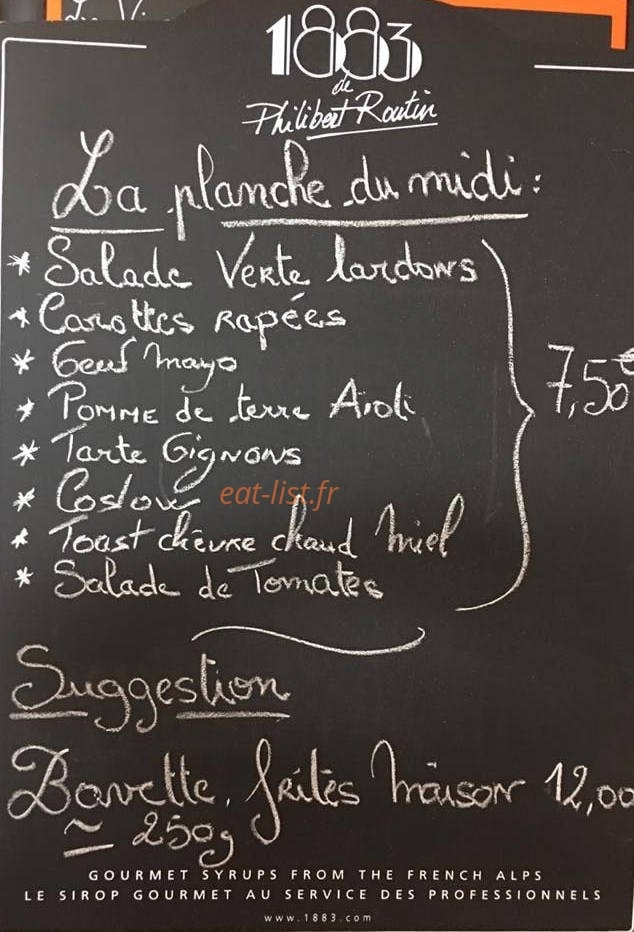 1883
de
Philibert Routin
La planche du midi :
* Salade Verte lardons
* Carottes Rapées
* Oeuf Mayo
7,50€
* Pomme de terre Aïoli
* Tarte Oignons
* Coslow
eat-list.fr
* Toast chèvre chaud Miel
* Salade de Tomates
Suggestion
Bavette, frites Maison 12,00
~ 250g
GOURMET SYRUPS FROM THE FRENCH ALPS
LE SIROP GOURMET AU SERVICE DES PROFESSIONNELS
www.1883.com